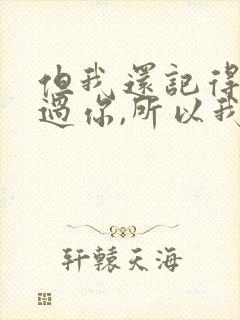 但我還記得
過你,所以我
轩辕天海